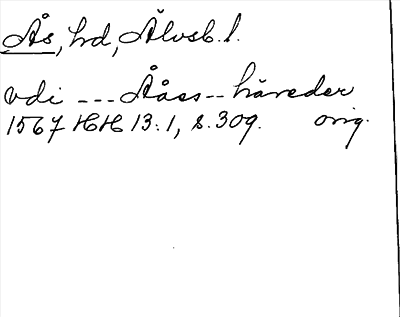 Ås, hrd, Älvsb. l.
vdi --- Åås -- häreder
1567 HH 13:1, s. 309. orig.